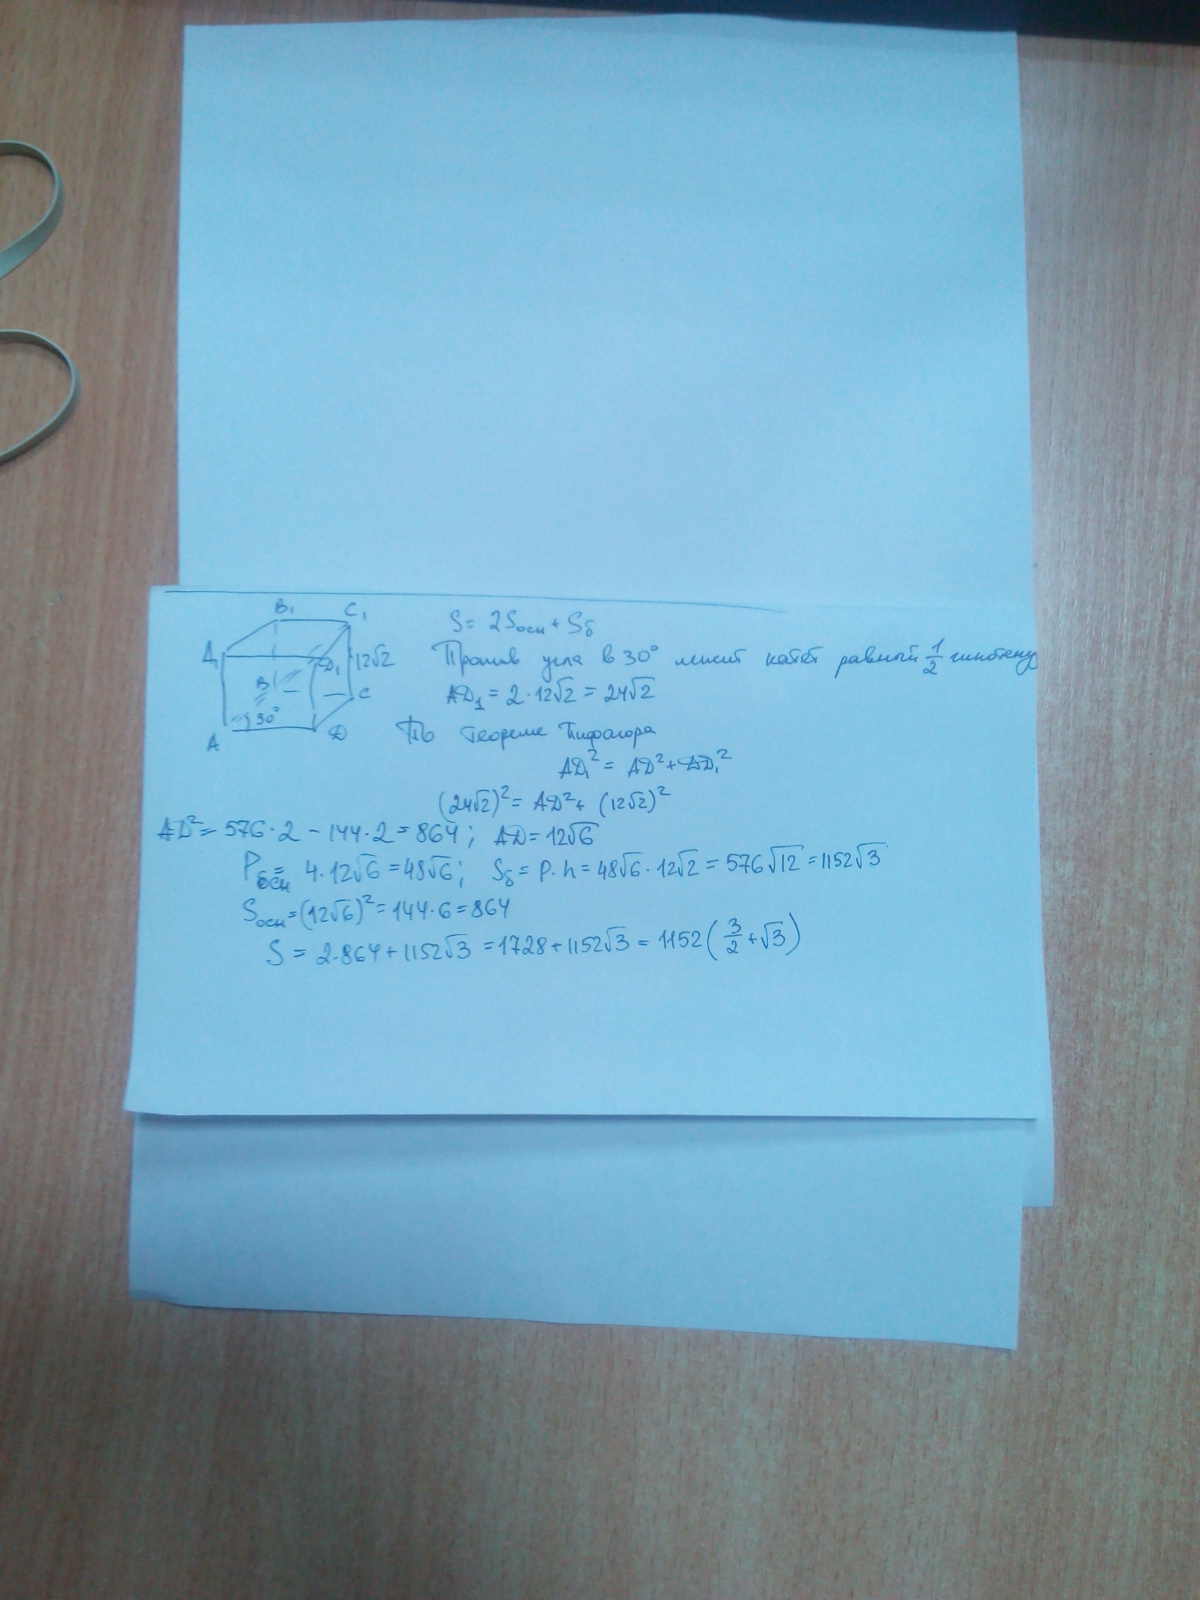 B₁ C₁
A₁ D₁ 12√2
B C
30°
A D
S = 2Sосн + Sб
Против угла в 30° лежит катет равный 1/2 гипотенуз
AD₁ = 2 · 12√2 = 24√2
По теореме Пифагора
AD₁² = AD² + DD₁²
(24√2)² = AD² + (12√2)²
AD² = 576·2 − 144·2 = 864; AD = 12√6
Pосн = 4·12√6 = 48√6; Sб = P·h = 48√6 · 12√2 = 576√12 = 1152√3
Sосн = (12√6)² = 144·6 = 864
S = 2·864 + 1152√3 = 1728 + 1152√3 = 1152(3/2 + √3)